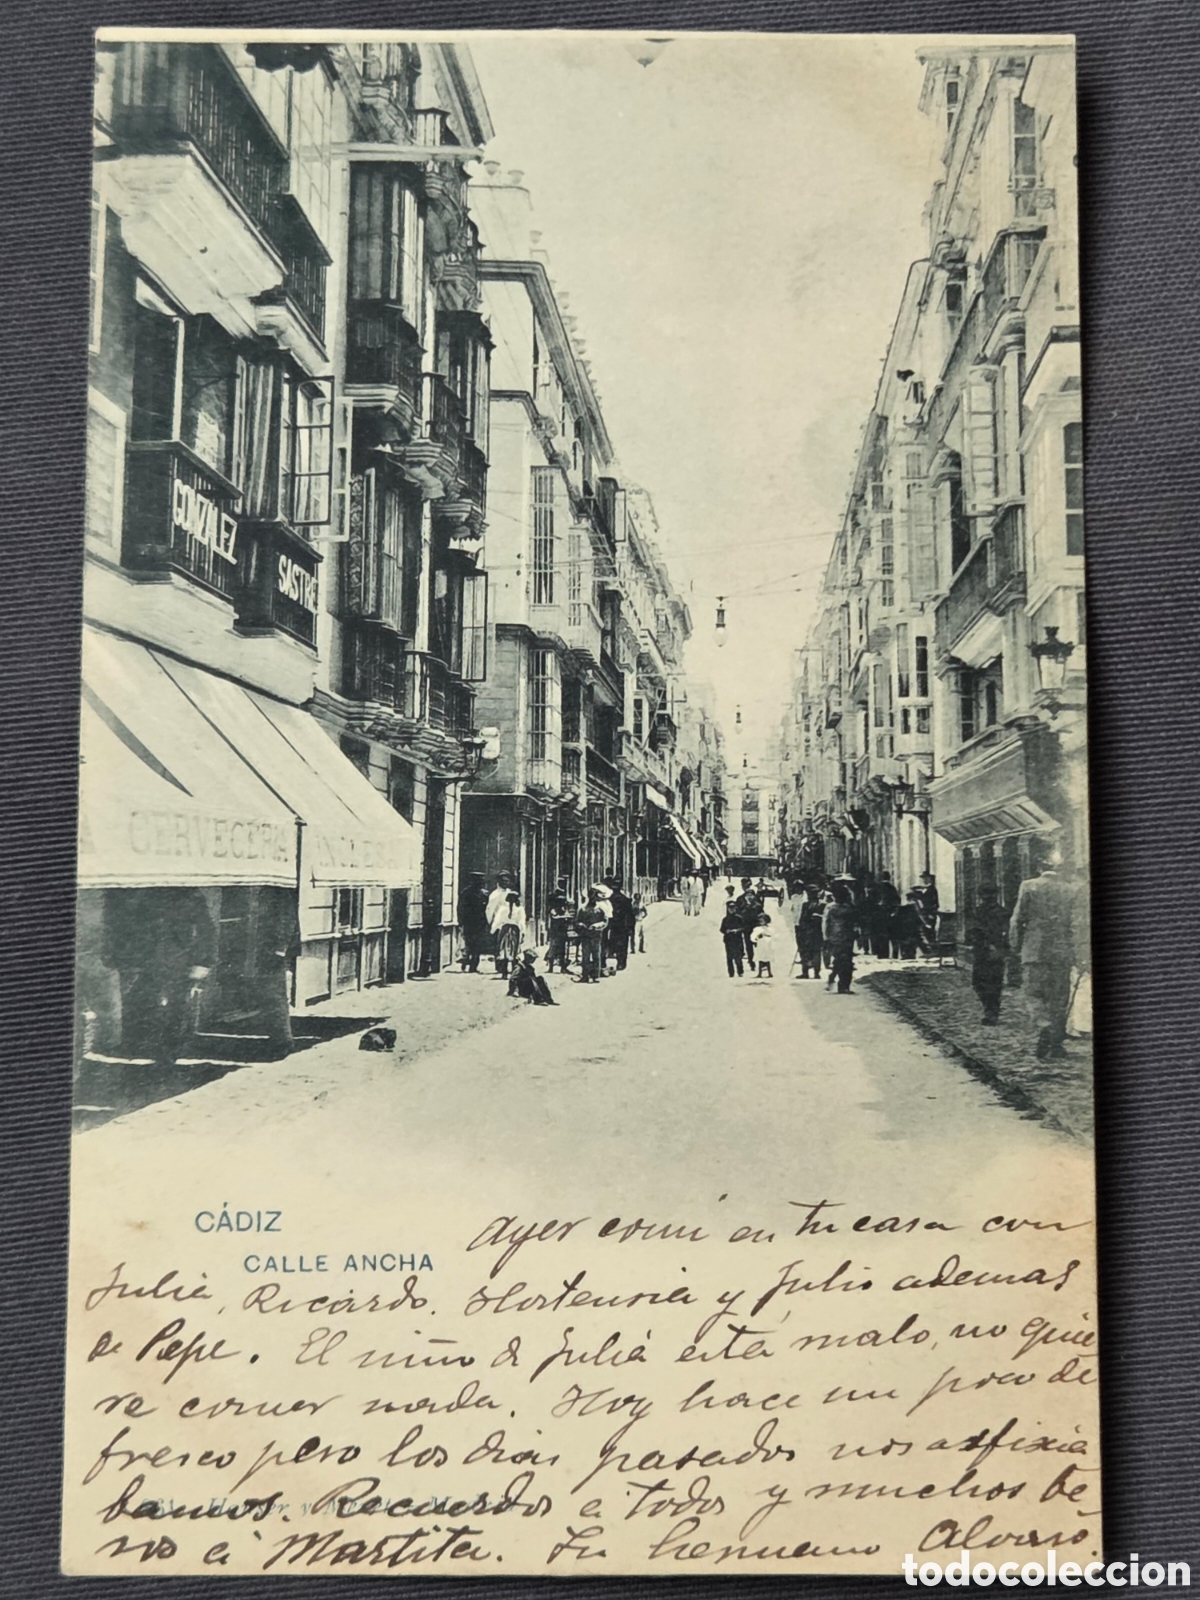 GONZALEZ
SASTRE
CERVECERIA INGLESA
CÁDIZ
CALLE ANCHA
Ayer comí en tu casa con
Julia, Ricardo, Hortensia y Julio además
de Pepe. El niño de Julia está malo, no quie
re comer nada. Hoy hace un poco de
fresco pero los días pasados nos asfixia
bamos. Recuerdos á todos y muchos be-
sos á Martita. Tu hermano Alvaro.
Hauser y Menet.- Madrid
todocoleccion